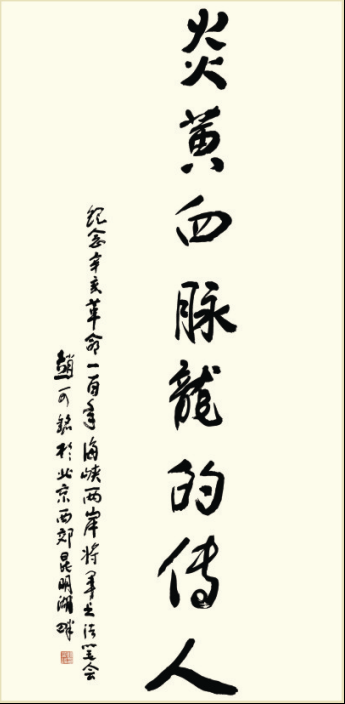 炎黄血脉龍的传人
纪念辛亥革命一百年海峡两岸将军书法笔会
趙可銘於北京西郊昆明湖畔